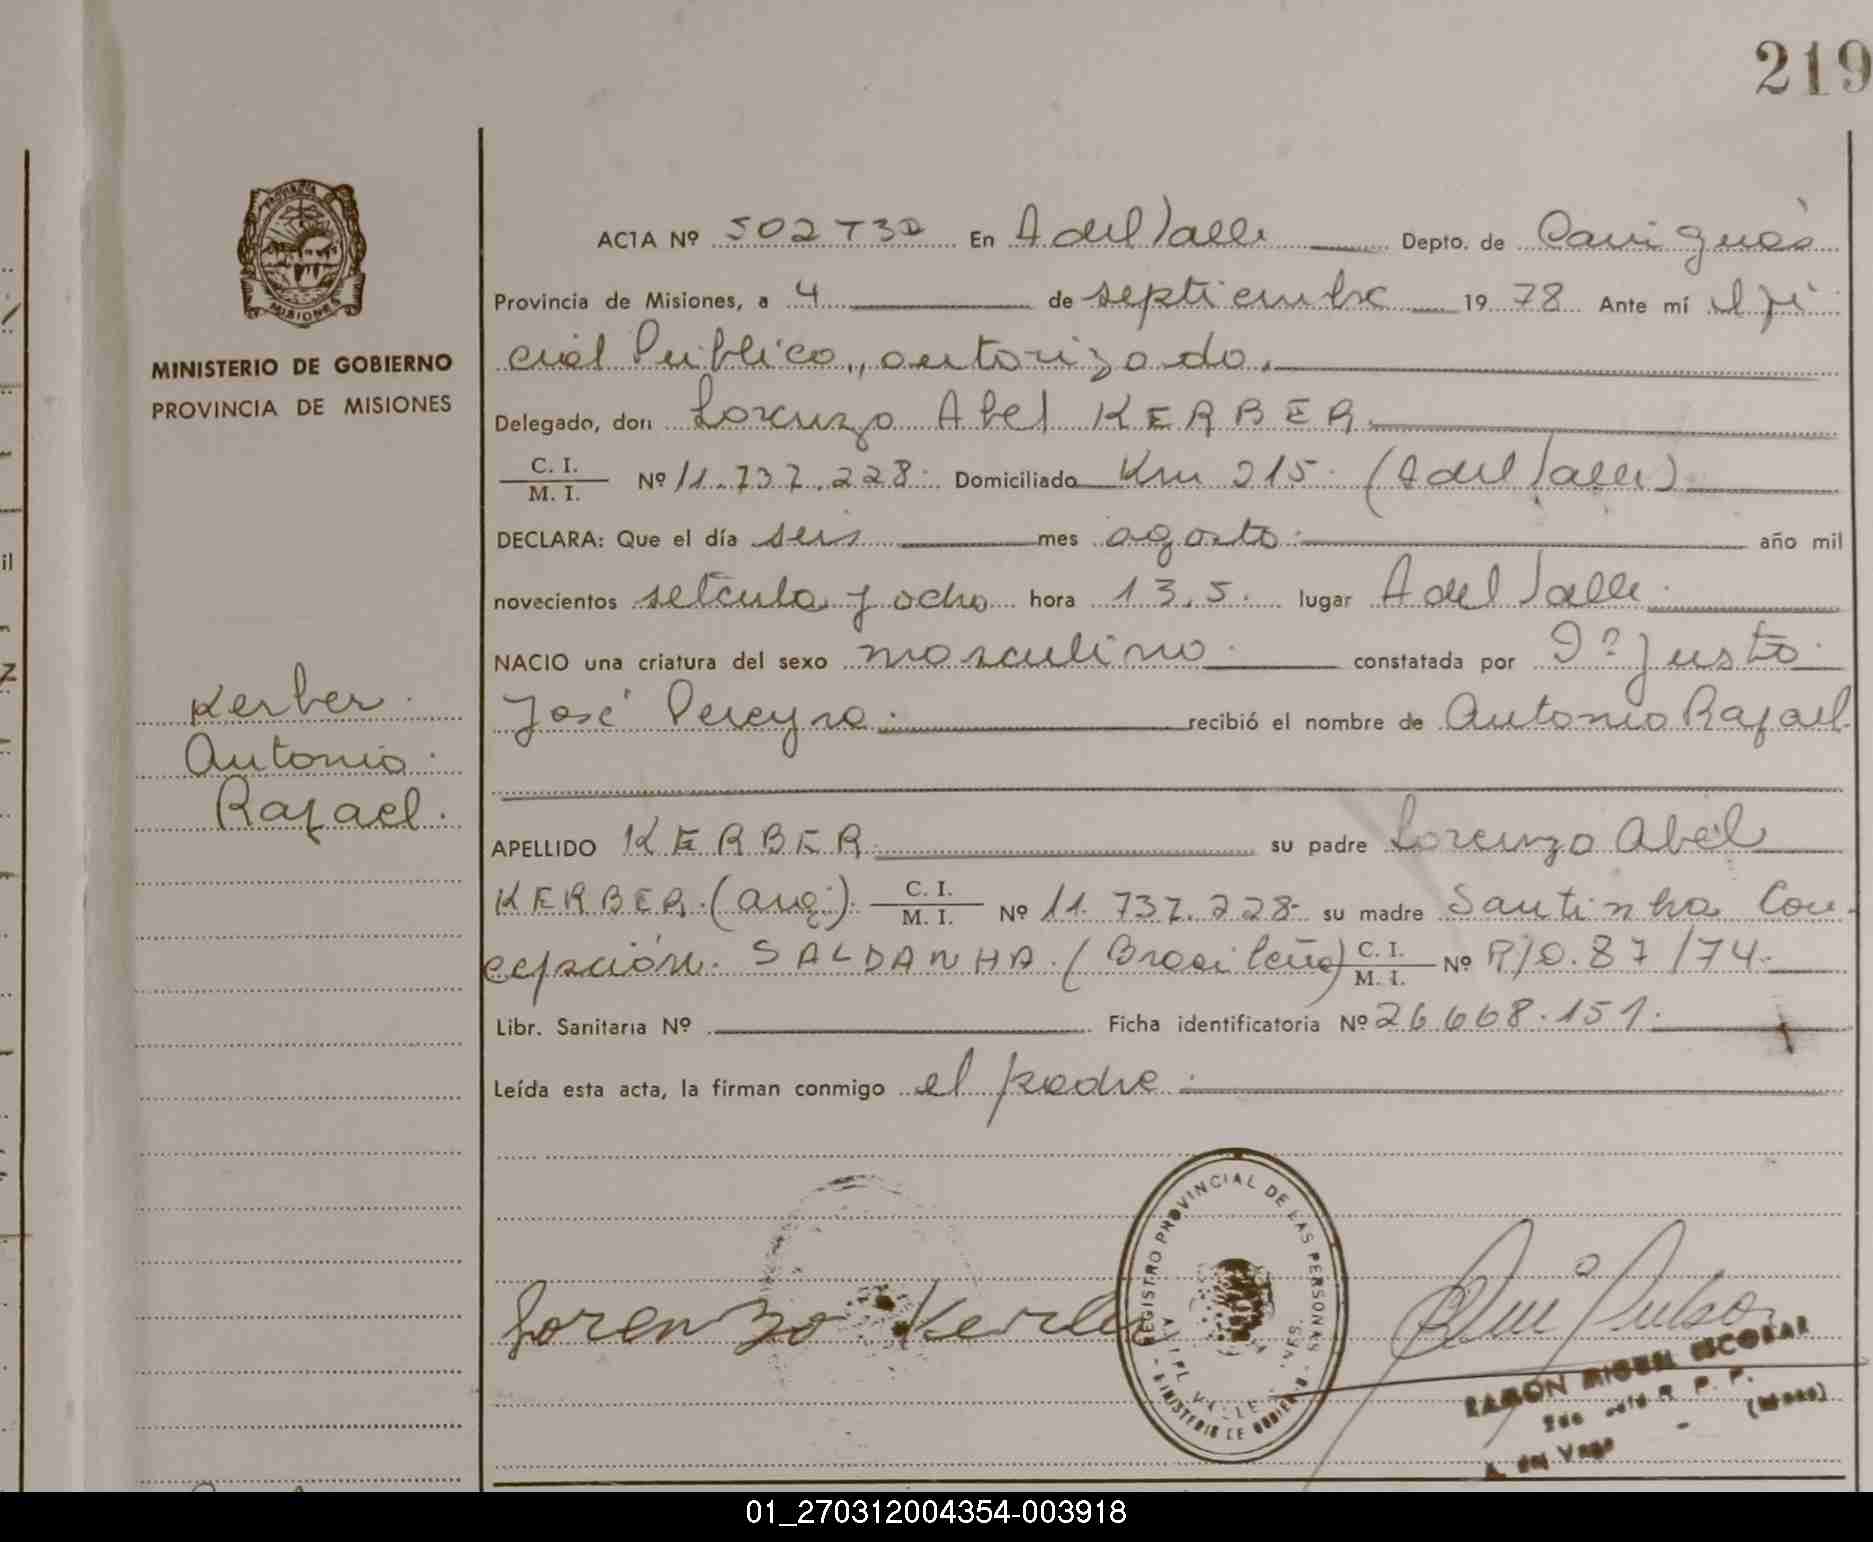 219
PROVINCIA
MISIONES
MINISTERIO DE GOBIERNO
PROVINCIA DE MISIONES
Kerber
Antonio
Rafael.
ACTA Nº 502 T3º En A del Valle Depto. de Cainguás
Provincia de Misiones, a 4 de septiembre 1978 Ante mí el ofi
cial Público, autorizado.
Delegado, don Lorenzo Abel KERBER
C. I.
M. I. Nº 11.737.228. Domiciliado Km 215. (A del Valle)
DECLARA: Que el día seis mes agosto. año mil
novecientos setenta y ocho hora 13,5. lugar A del Valle.
NACIO una criatura del sexo masculino. constatada por Dº Justo
José Pereyra. recibió el nombre de Antonio Rafael
APELLIDO KERBER. su padre Lorenzo Abel
KERBER. (arg.). C. I. M. I. Nº 11.737.228- su madre Santinha Con-
cepción. SALDANHA. (Brasileña) C. I. M. I. Nº R/O.87/74.-
Libr. Sanitaria Nº Ficha identificatoria Nº 26.668.151.
Leída esta acta, la firman conmigo el padre.
Lorenzo Kerber
REGISTRO PROVINCIAL DE LAS PERSONAS
MINISTERIO DE GOBIERNO
VALLE
RAMON MIGUEL ESCOBAR
01_270312004354-003918